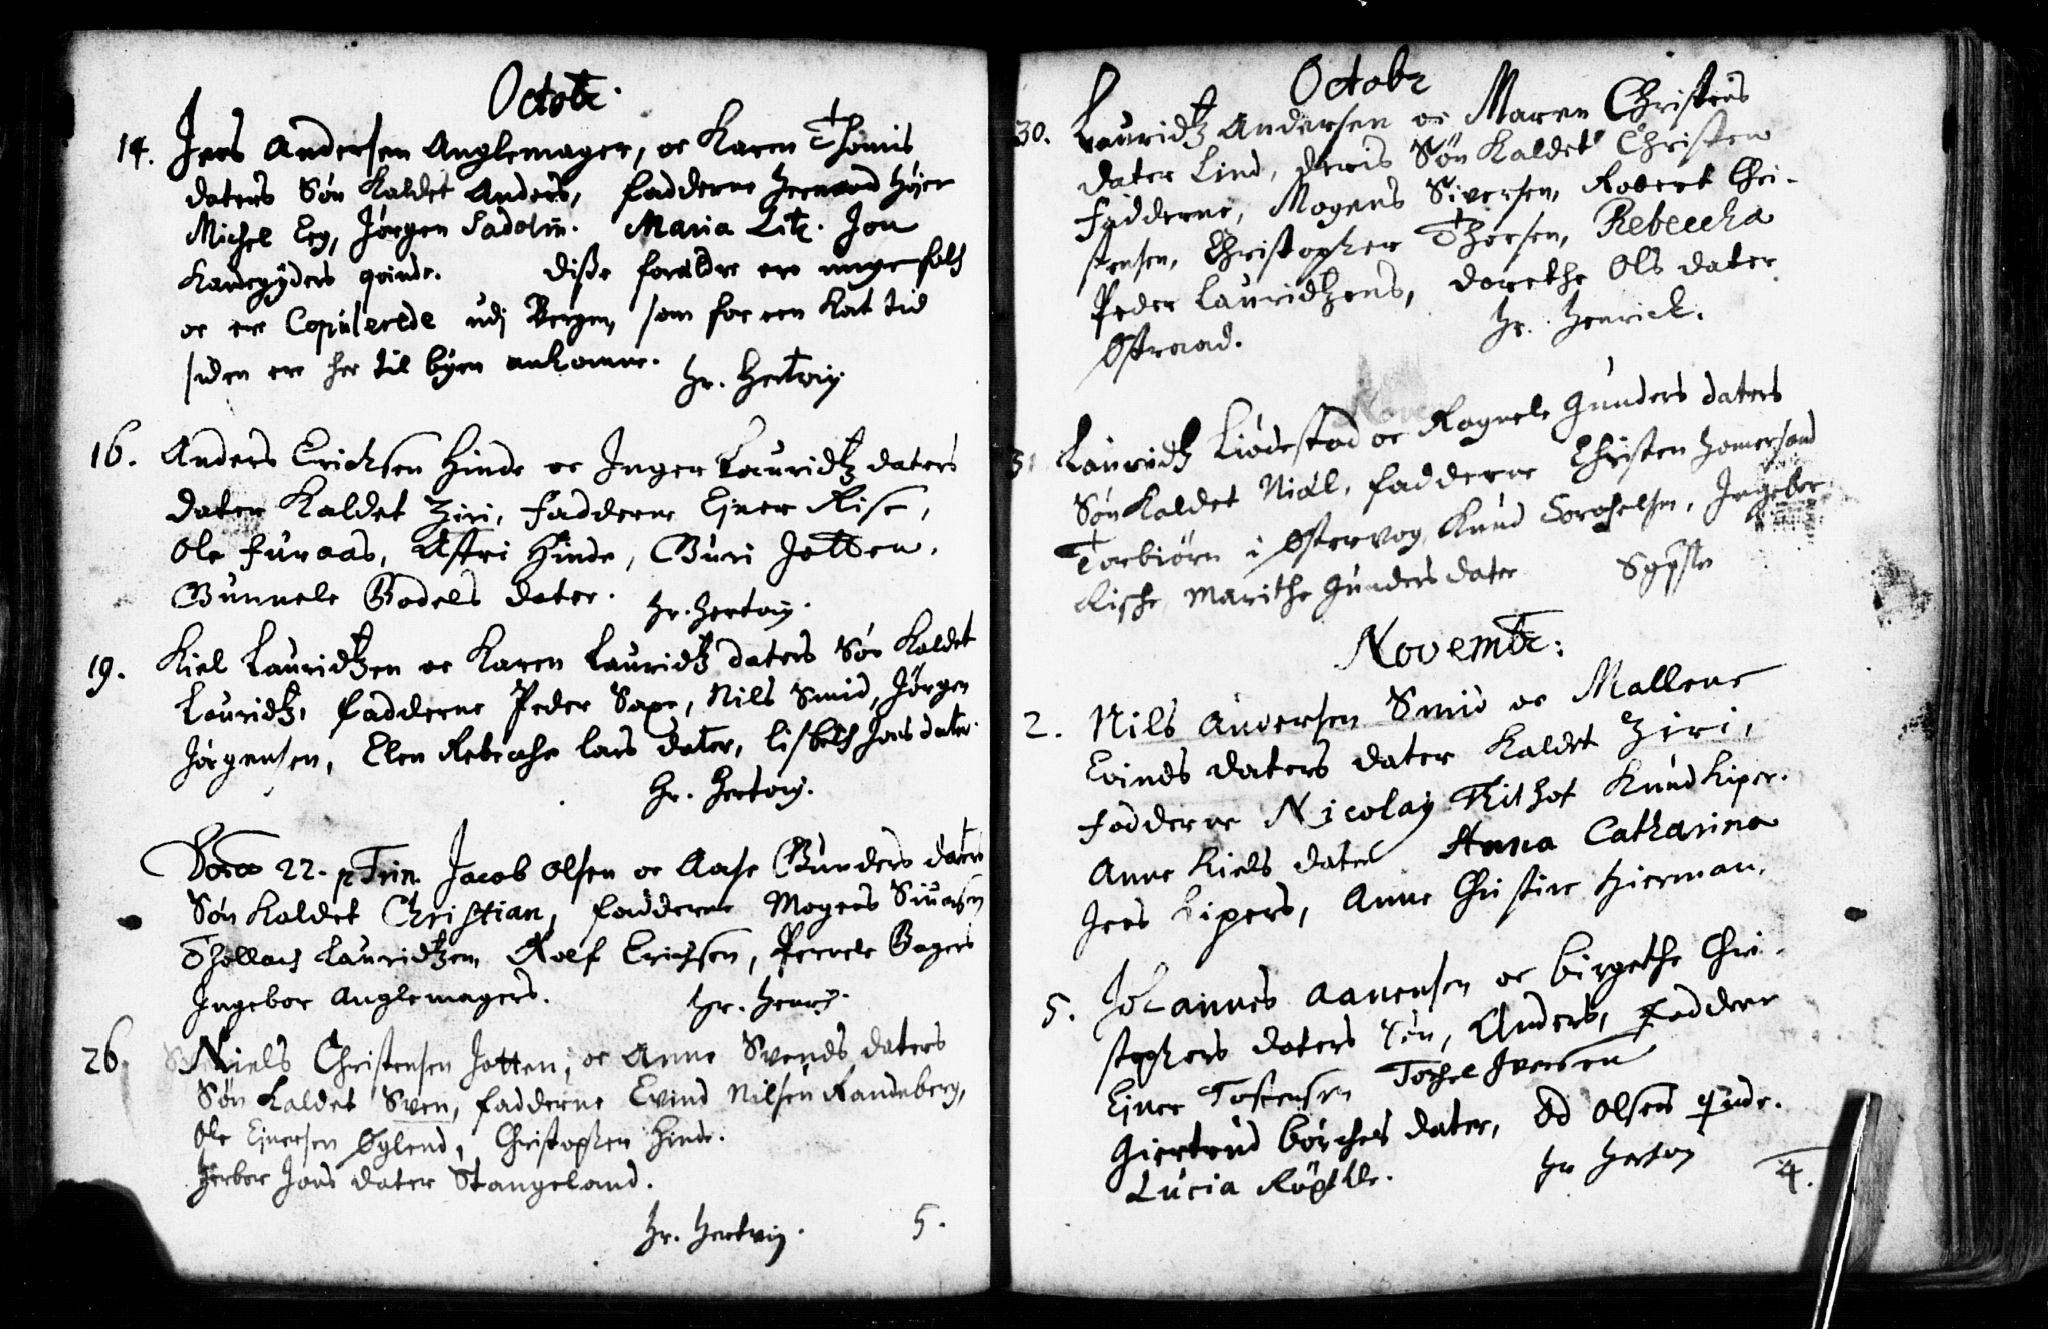 Octobr.
14. Jens Andersen Anglemager, oc Karen Thomis
daters Søn kaldet Anders, fadderne Høyer
Michel Ley, Jørgen Sadolin. Maria Litz. Jon
Kandegyders qvinde. Disse foreldre ere unge folk
oc ere Copulerede udj Bergen, som for een kort tid
siden ere her til byen ankomne. Hr. Hertvig
16. Anders Erichsen Hinde oc Inger Lauridtz daters
dater kaldet Ziri, Fadderne Ejner Rise,
Ole Furaas, Astri Hinde, Guri Jotten.
Gunnele Bodels dater. Hr. Hertvig.
19. Kiel Lauridtzen oc Karen Lauridtz daters Søn kaldet
Lauridtz, fadderne Peder Saxe, Nils Smid, Jørgen
Jørgensen, Elen Rebeche Lars dater, Lisbeth Jons dater.
Hr. Hertvig.
Domca 22. p Trin. Jacob Olsen oc Aase Gunders daters
Søn kaldet Christian, fadderne Mogens Siversen
Thollach Lauridtzen, Rolf Erichsen, Pernele Bagers
Ingebor Anglemagers. Hr. Henrich.
26. Niels Christensen Jotten, oc Anne Svends daters
Søn kaldet Sven, fadderne Evind Nilsen Randeberg,
Ole Ejnersen Øglend, Christopher Hinde.
Herbor Jons dater Stangeland.
Hr. Hertvig. 5.
Octobr
30. Lauridtz Andersen oc Maren Christens
dater Lind, deris Søn kaldet Christen
Fadderne, Mogens Siversen, Robert Chri-
stensen, Christopher Thorsen, Rebeccha
Peder Lauridtzens, Dorethe Ols dater
Østraad. Hr. Henrick.
31 Lauridtz Liodestad oc Ragnele Gunders daters
Søn kaldet Niæl, fadderne Christen Homersand
Torbiørn i Ostervog, Knud Ingebor
Rische Marithe Gunders dater
Novembr:
2. Nils Andersen Smid oc Mallene
Evinds daters dater kaldet Ziri,
Fadderne Nicolay Thithof Knud Kiper.
Anne Kiels dater Anna Catharina
Jens Kipers, Anne Christine Hierman.
5. Johannes Aanensen oc Birgethe Chri-
stophers daters Søn, Anders, Faddere
Ejner Tostensen Tochel Iversen
Giertrud Børches dater, Od Olsens qvinde.
Lucia Røpkke. Hr Hertvig
4.